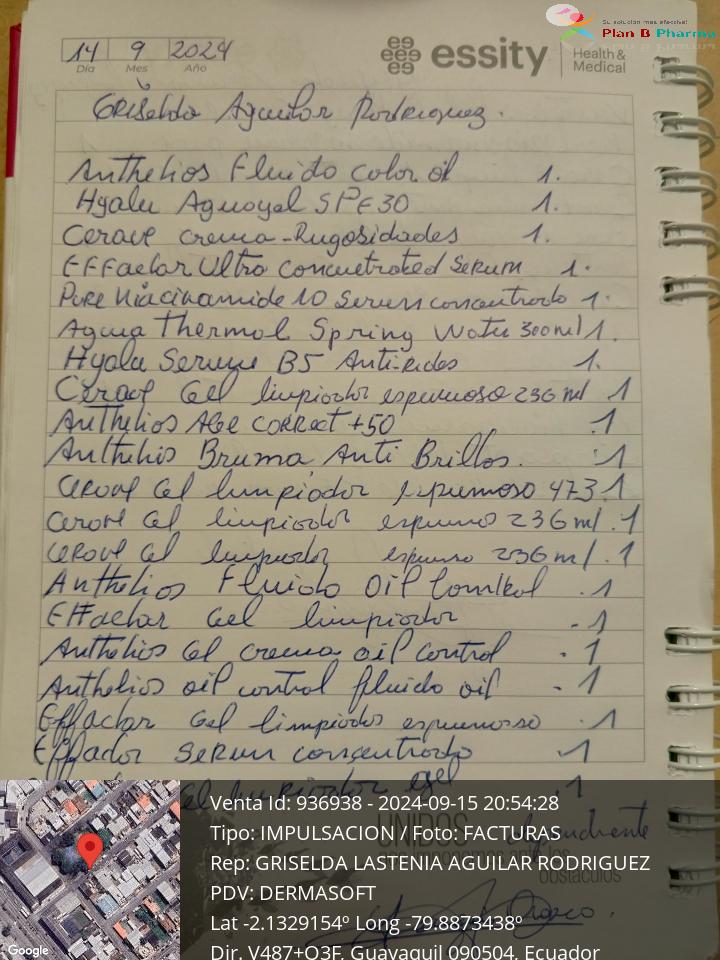 Su solución más efectiva!
Plan B Pharma
14 9 2024
Día Mes Año
essity
Health &
Medical
Griselda Aguilar Rodriguez.
Anthelios Fluido color oil 1.
Hyalu Aguagel SPF30 1.
Cerave crema-Rugosidades 1.
EFFaclar Ultra Concuetrated Serum 1.
Pure Niacinamide 10 Serum concentrado 1.
Agua Thermal Spring Water 300ml 1.
Hyalu Serum B5 Anti-Rides 1.
Cerave Gel limpiador espumoso 236 ml 1
Anthelios AGE CORRECT +50 .1
Anthelios Bruma Anti Brillos. .1
Cerave Gel limpiador espumoso 473.1
Cerave Gel limpiador espumoso 236 ml .1
Cerave Gel limpiador espumoso 236 ml .1
Anthelios Fluido Oil Control .1
EFFaclar Gel limpiador .1
Anthelios Gel crema oil control .1
Anthelios oil control fluido oil .1
Effaclar Gel limpiador espumoso .1
Effaclor Serum concentrado .1
Gel limpiador .1
Venta Id: 936938 - 2024-09-15 20:54:28
Tipo: IMPULSACION / Foto: FACTURAS
UNIDOS
Rep: GRISELDA LASTENIA AGUILAR RODRIGUEZ
obstáculos
PDV: DERMASOFT
Lat -2.1329154º Long -79.8873438º
Dir. V487+Q3F, Guayaquil 090504, Ecuador
Google